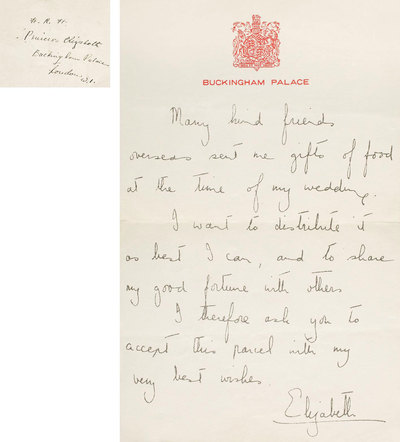 H. R. H.
Princess Elizabeth
Buckingham Palace
London
BUCKINGHAM PALACE
Many kind friends
overseas sent me gifts of food
at the time of my wedding.
I want to distribute it
as best I can, and to share
my good fortune with others
I therefore ask you to
accept this parcel with my
very best wishes.
Elizabeth